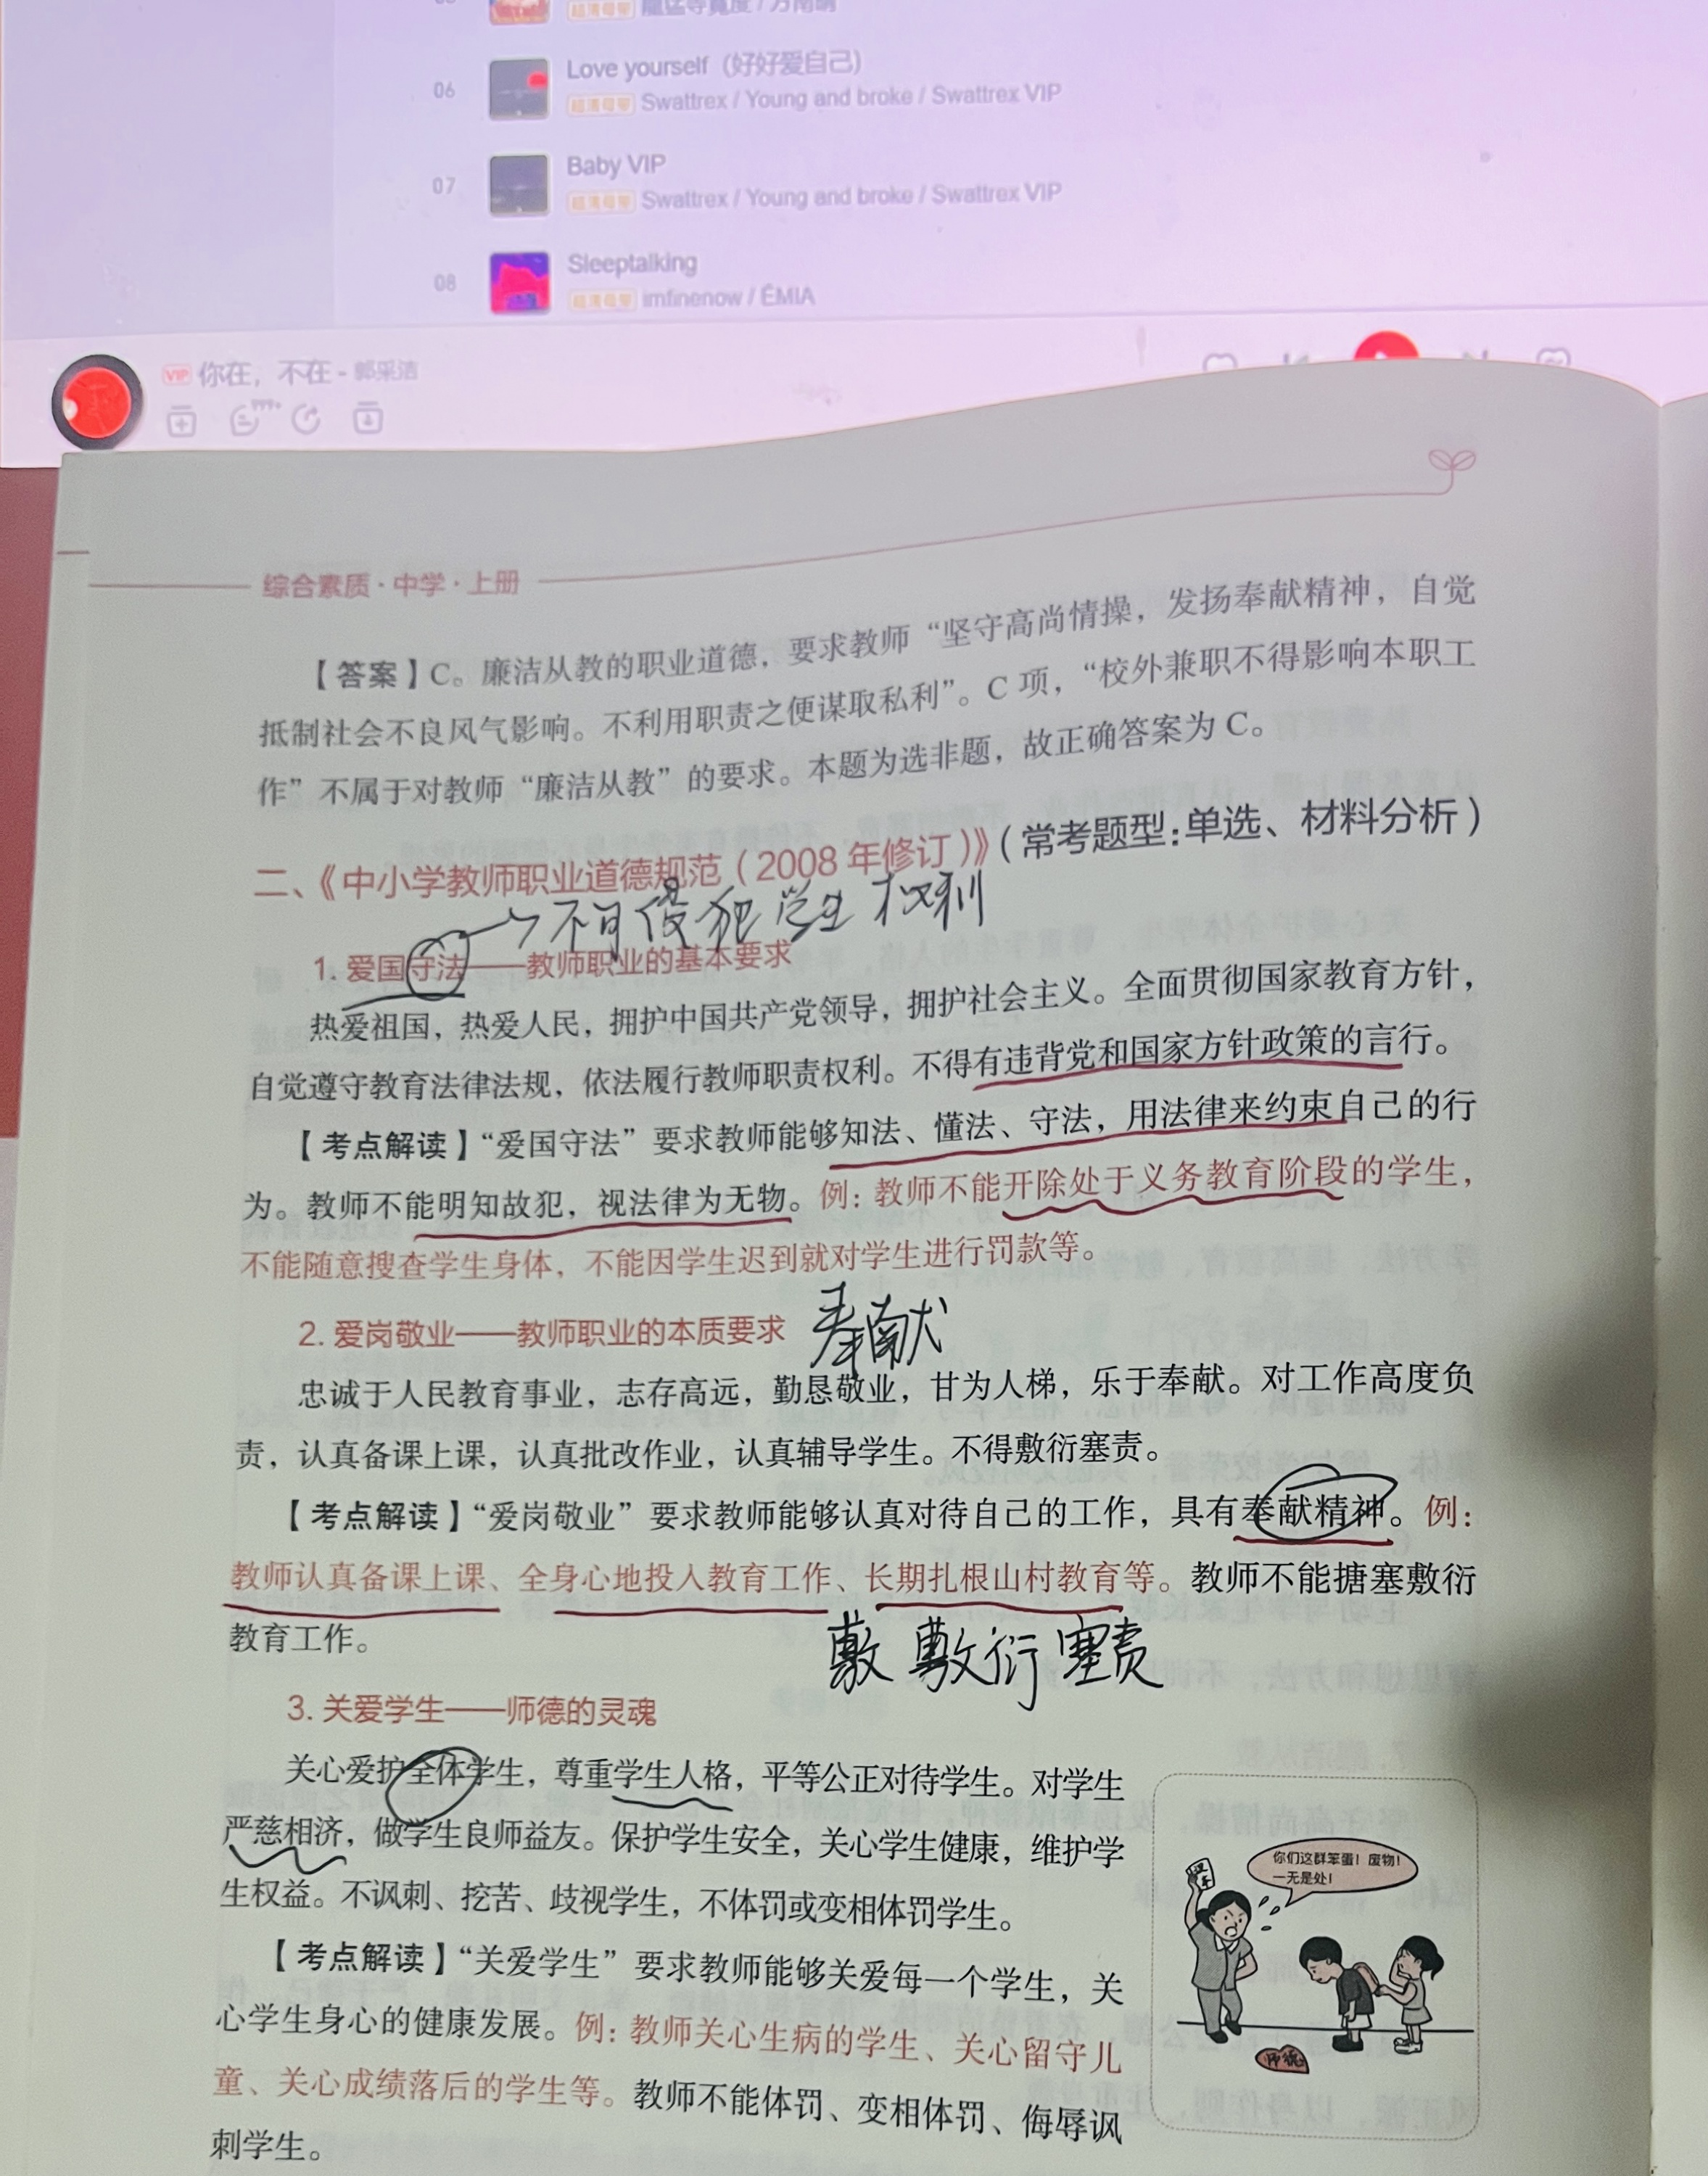 06
Love yourself（好好爱自己）
超清母带 Swattrex / Young and broke / Swattrex VIP
07
Baby VIP
超清母带 Swattrex / Young and broke / Swattrex VIP
08
Sleeptalking
超清母带 imfinenow / ÉMIA
VIP 你在，不在 - 郭采洁
综合素质·中学·上册
【答案】C。廉洁从教的职业道德，要求教师“坚守高尚情操，发扬奉献精神，自觉
抵制社会不良风气影响。不利用职责之便谋取私利”。C 项，“校外兼职不得影响本职工
作”不属于对教师“廉洁从教”的要求。本题为选非题，故正确答案为 C。
二、《中小学教师职业道德规范（2008 年修订）》（常考题型：单选、材料分析）
不可侵犯学生权利
1. 爱国守法——教师职业的基本要求
热爱祖国，热爱人民，拥护中国共产党领导，拥护社会主义。全面贯彻国家教育方针，
自觉遵守教育法律法规，依法履行教师职责权利。不得有违背党和国家方针政策的言行。
【考点解读】“爱国守法”要求教师能够知法、懂法、守法，用法律来约束自己的行
为。教师不能明知故犯，视法律为无物。例：教师不能开除处于义务教育阶段的学生，
不能随意搜查学生身体，不能因学生迟到就对学生进行罚款等。
2. 爱岗敬业——教师职业的本质要求 奉献
忠诚于人民教育事业，志存高远，勤恳敬业，甘为人梯，乐于奉献。对工作高度负
责，认真备课上课，认真批改作业，认真辅导学生。不得敷衍塞责。
【考点解读】“爱岗敬业”要求教师能够认真对待自己的工作，具有奉献精神。例：
教师认真备课上课、全身心地投入教育工作、长期扎根山村教育等。教师不能搪塞敷衍
教育工作。
敷 敷衍塞责
3. 关爱学生——师德的灵魂
关心爱护全体学生，尊重学生人格，平等公正对待学生。对学生
严慈相济，做学生良师益友。保护学生安全，关心学生健康，维护学
生权益。不讽刺、挖苦、歧视学生，不体罚或变相体罚学生。
【考点解读】“关爱学生”要求教师能够关爱每一个学生，关
心学生身心的健康发展。例：教师关心生病的学生、关心留守儿
童、关心成绩落后的学生等。教师不能体罚、变相体罚、侮辱讽
刺学生。
你们这群笨蛋！废物！
一无是处！
师德